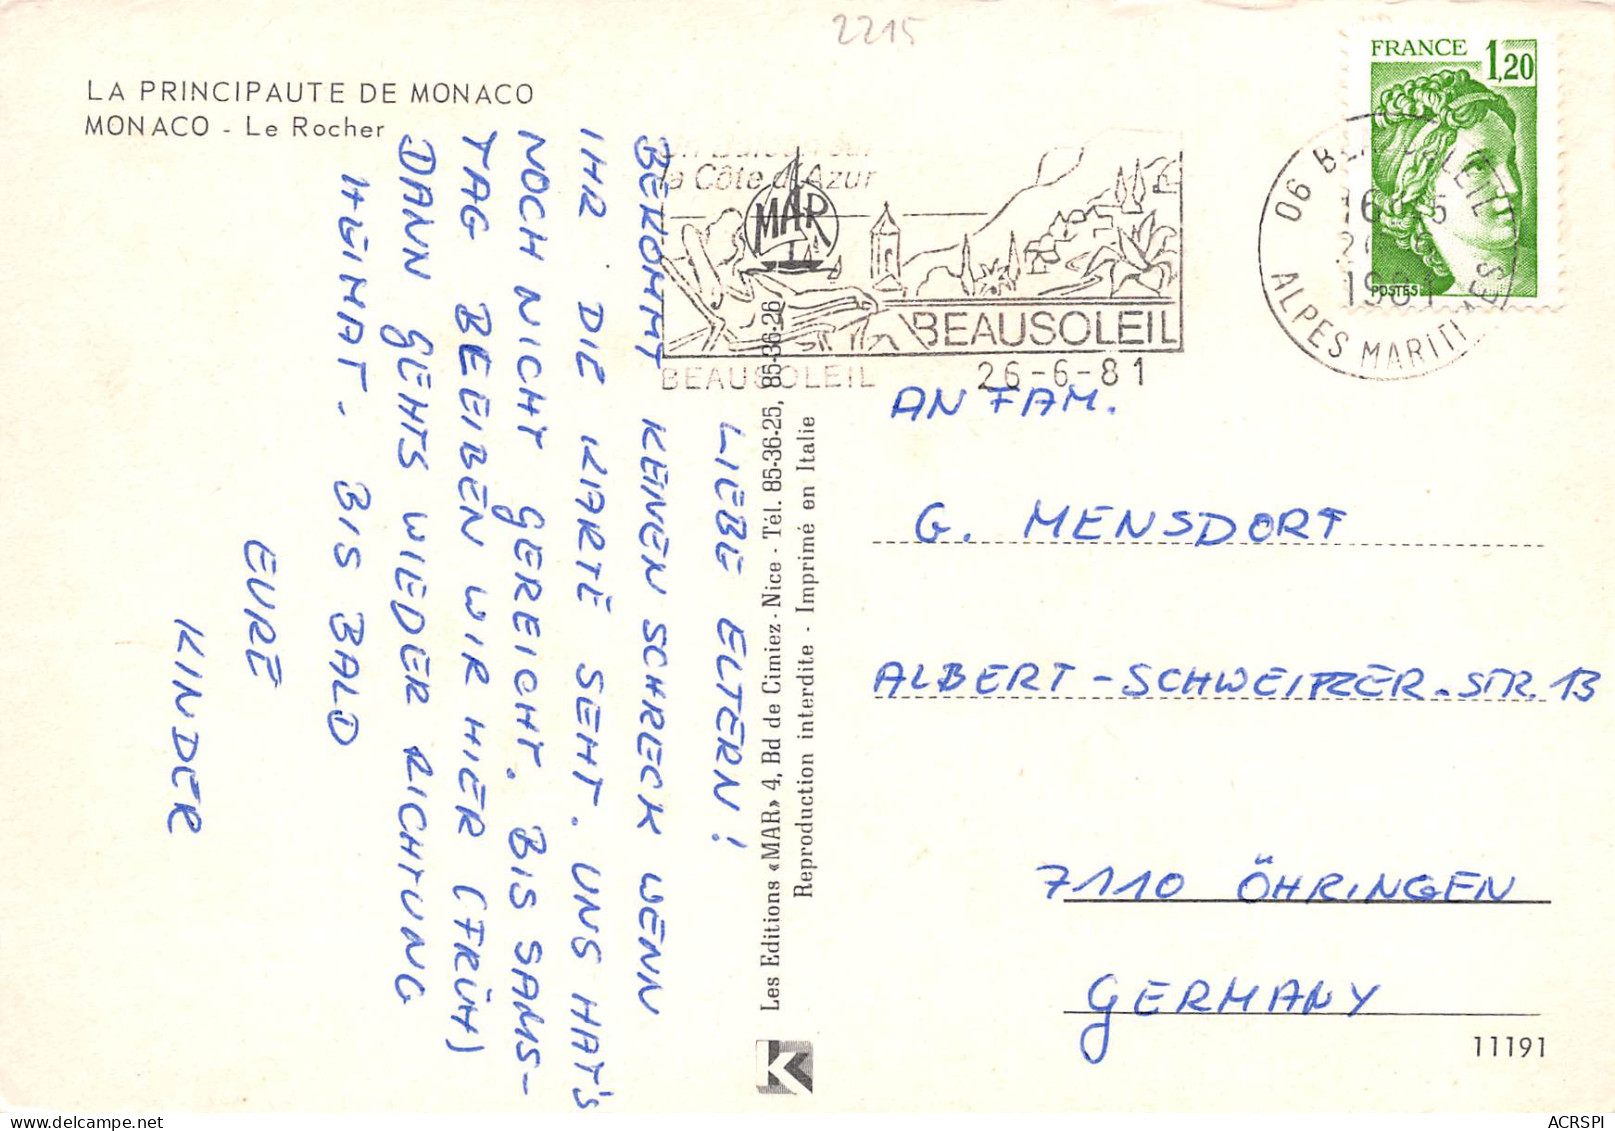 2215
LA PRINCIPAUTE DE MONACO
MONACO - Le Rocher
LIEBE ELTERN!
BEKOMMT KEINEN SCHRECK WENN
IHR DIE KARTE SEHT. UNS HAT'S
NOCH NICHT GEREICHT. BIS SAMS-
TAG BLEIBEN WIR HIER (FRÜH)
DANN GEHTS WIEDER RICHTUNG
HEIMAT. BIS BALD
EURE
KINDER
Un Balcon sur
la Côte d'Azur
MAR
BEAUSOLEIL
BEAUSOLEIL
26-6-81
Les Editions «MAR» 4, Bd de Cimiez - Nice - Tél. 85-36-25, 85-36-26
Reproduction interdite - Imprimé en Italie
K
FRANCE
1,20
POSTES
06 BEAUSOLEIL
1981
ALPES MARITIMES
AN FAM.
G. MENSDORF
ALBERT-SCHWEITZER-STR. 13
7110 ÖHRINGEN
GERMANY
11191
ACRSPI